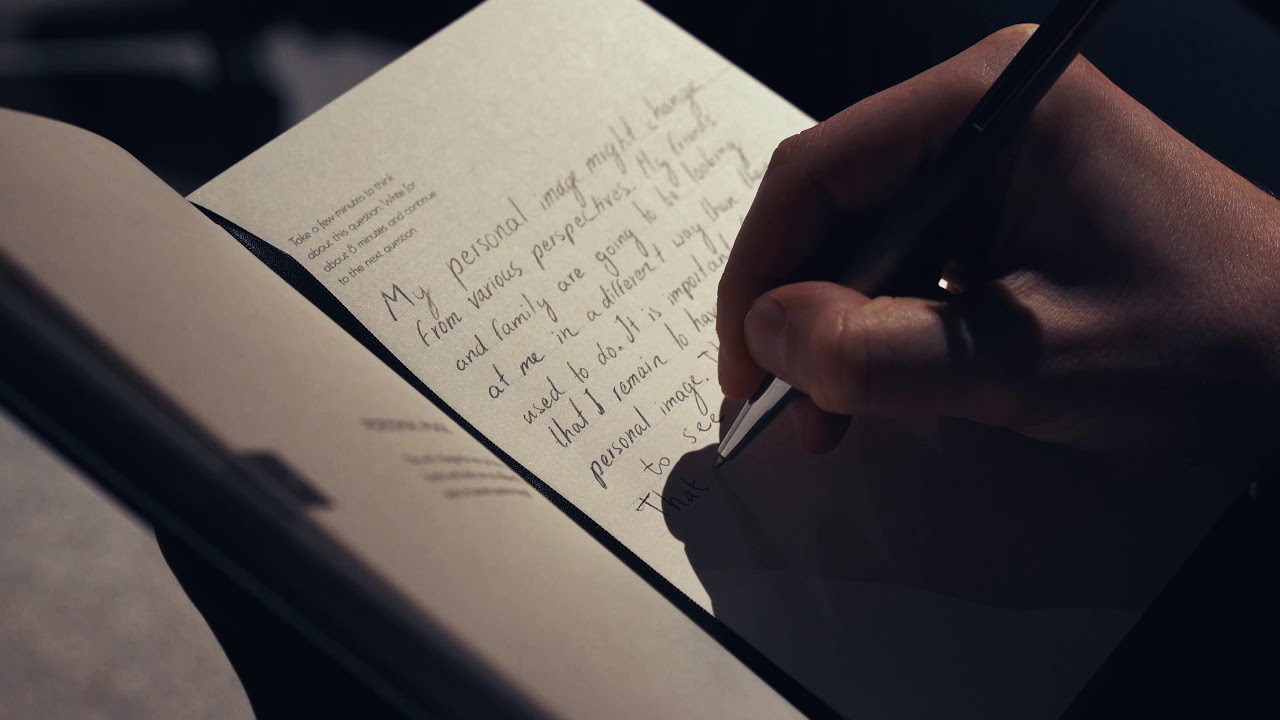 Take a few minutes to think
about this question. Write for
about 8 minutes and continue
to the next question
My personal image might change
from various perspectives. My friends
and family are going to be looking
at me in a different way than they
used to do. It is important
that I remain to have
personal image.
to see
That